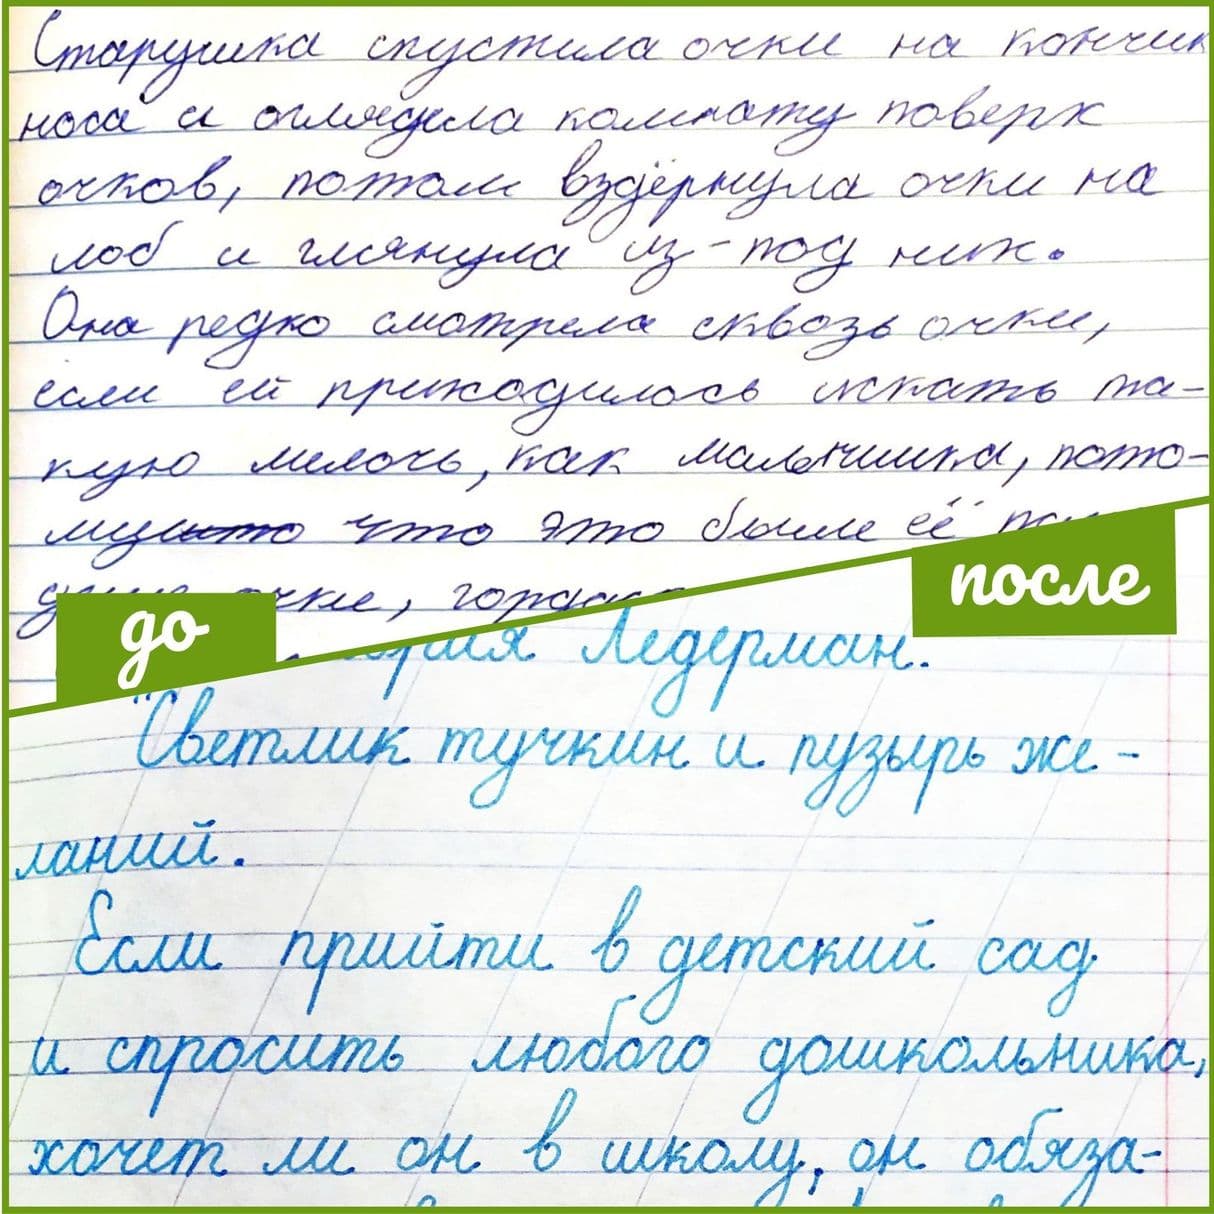 Старушка спустила очки на кончик
носа и оглядела комнату поверх
очков, потом вздёрнула очки на
лоб и глянула из-под них.
Она редко смотрела сквозь очки,
если ей приходилось искать та-
кую мелочь, как мальчишка, пото-
му что это были её
очки,
до
после
Ледерман.
"Светлик тучкин и пузырь же-
ланий.
Если прийти в детский сад
и спросить любого дошкольника,
хочет ли он в школу, он обяза-